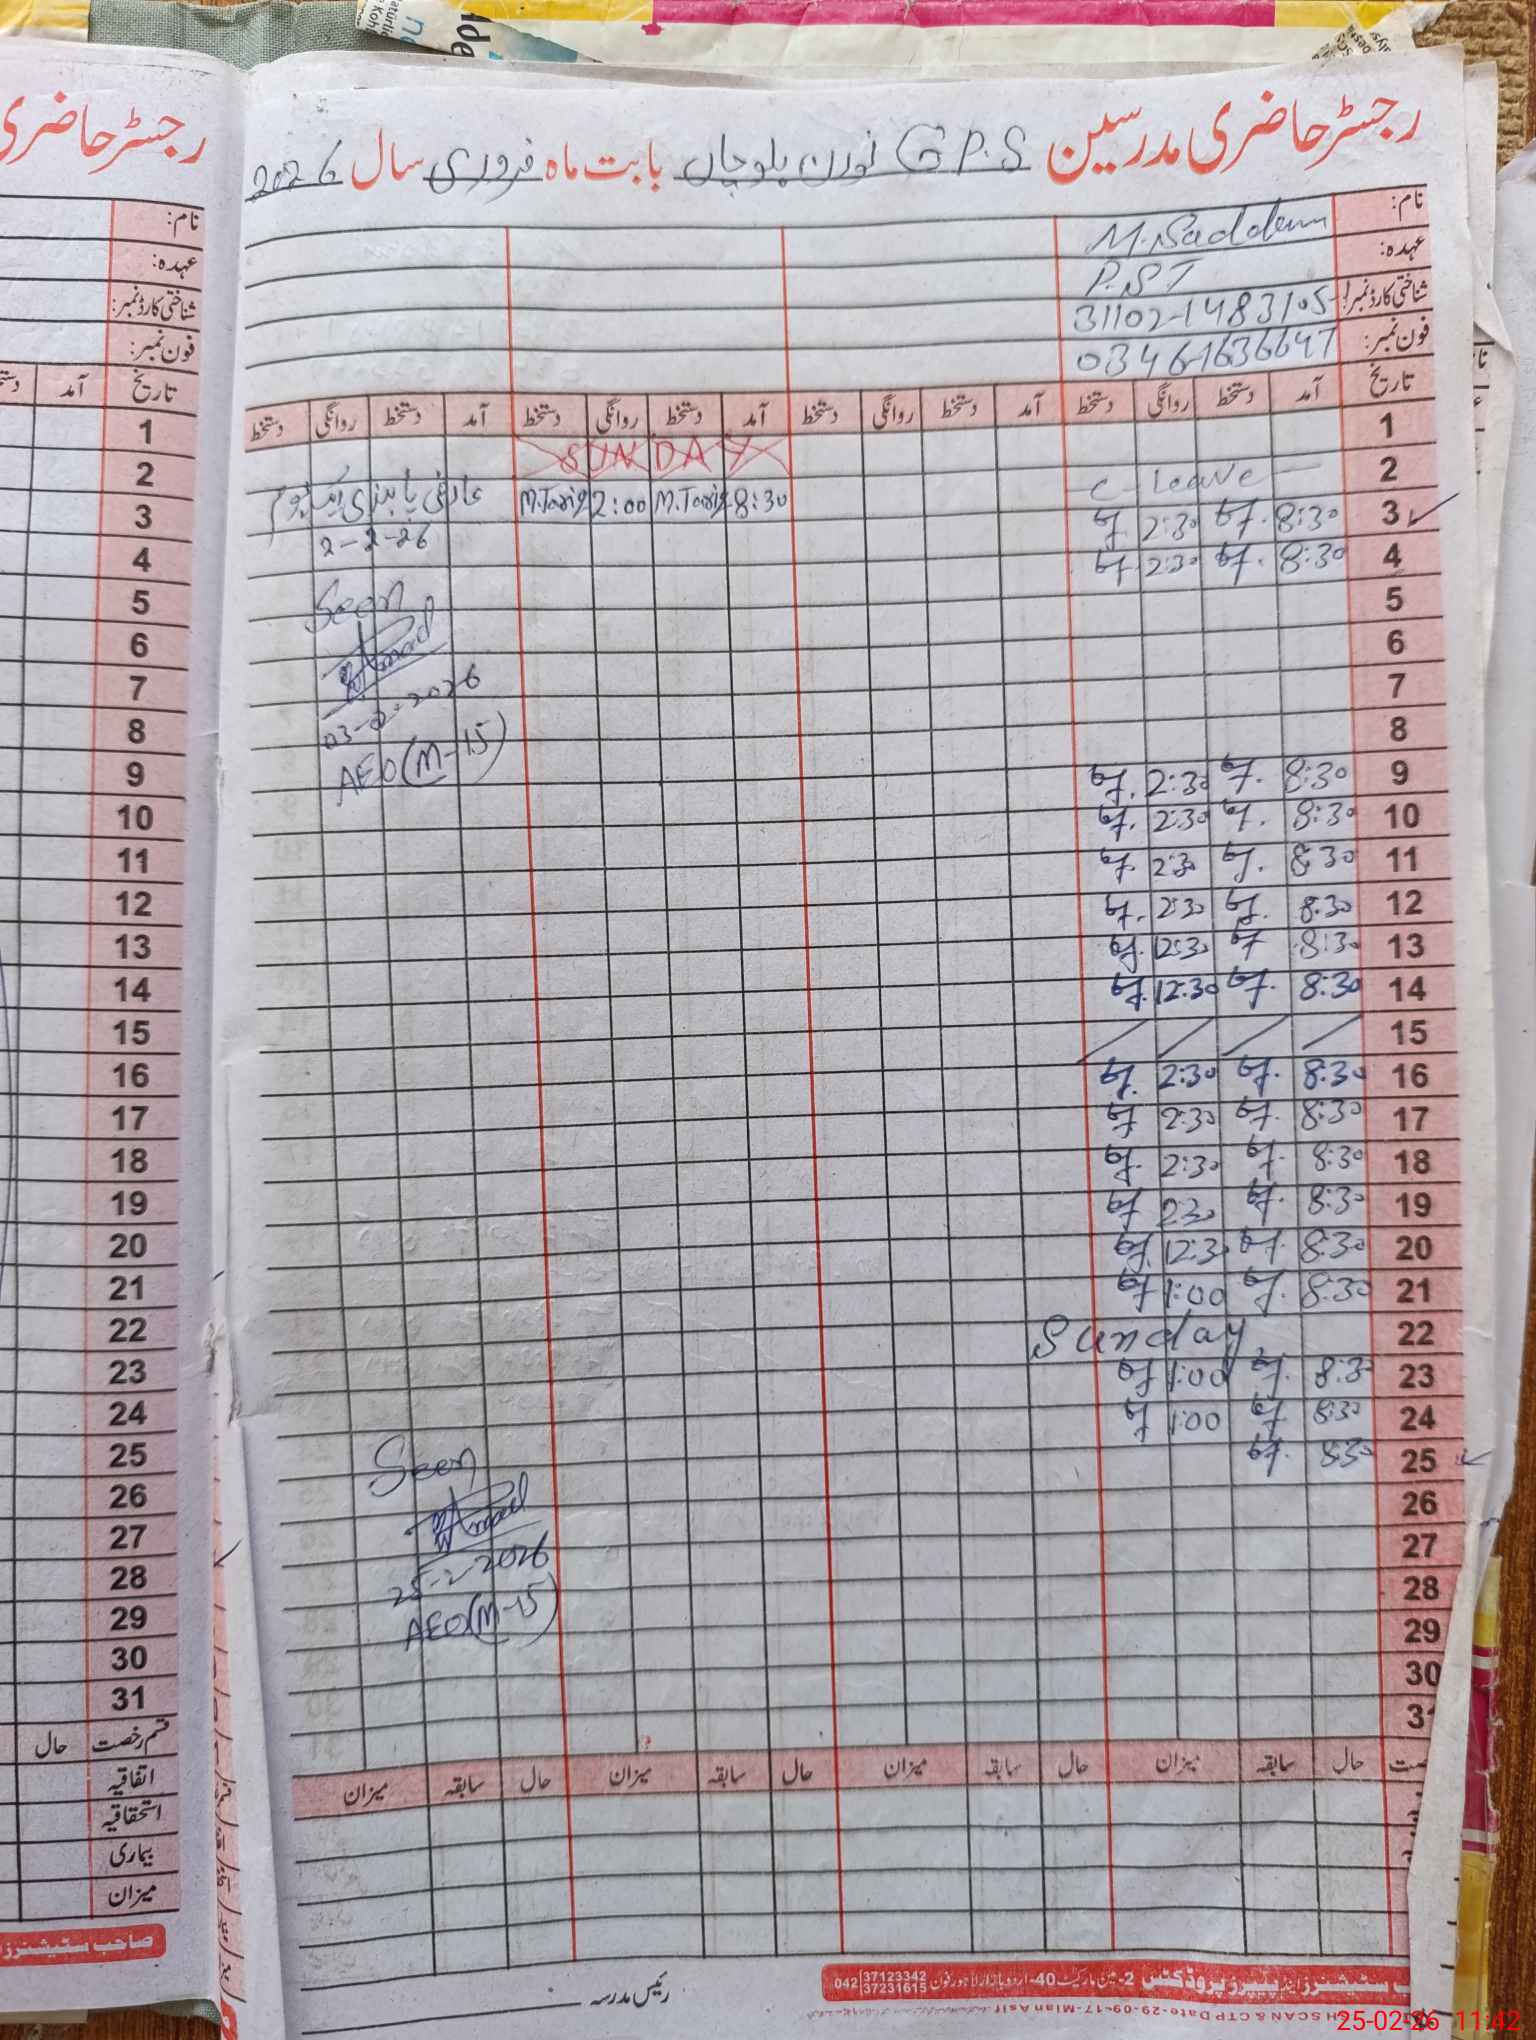 رجسٹر حاضری مدرسین G P.S نورن بلوچاں بابت ماہ فروری سال 2026
نام: M. Saddam
عہدہ: P.S T
شناختی کارڈ نمبر: 31102-1483105-
فون نمبر: 03461636647
تاریخ آمد دستخط روانگی دستخط آمد دستخط روانگی دستخط آمد دستخط روانگی دستخط آمد دستخط روانگی دستخط
1 SUNDAY
2 C- Leave 8:30 M.Tariq 2:00 M.Tariq
2-2-26
3 8:30 2:30
4 8:30 2:30
5
Seen
6
7
03-2-2026
8
AEO (M-15)
9 8:30 2:30
10 8:30 2:30
11 8:30 2:30
12 8:30 2:30
13 8:30 12:30
14 8:30 12:30
15
16 8:30 2:30
17 8:30 2:30
18 8:30 2:30
19 8:30 2:30
20 8:30 12:30
21 8:30 1:00
22 Sunday
23 8:30 1:00
24 8:30 1:00
25 8:30
Seen
26
27
25-2-2026
28
AEO (M-15)
29
30
31
حال سابقہ میزان حال سابقہ میزان حال سابقہ میزان حال سابقہ میزان
رئیس مدرسہ
سٹیشنرز اینڈ پیپرز پروڈکٹس 2-مین مارکیٹ 40-اردو بازار لاہور فون 042 37123342 37231615
رجسٹر حاضری
نام:
عہدہ:
شناختی کارڈ نمبر:
فون نمبر:
تاریخ آمد
1
2
3
4
5
6
7
8
9
10
11
12
13
14
15
16
17
18
19
20
21
22
23
24
25
26
27
28
29
30
31
قسم رخصت حال
اتفاقیہ
استحقاقیہ
بیماری
میزان
صاحب سٹیشنرز
25-02-26 11:42